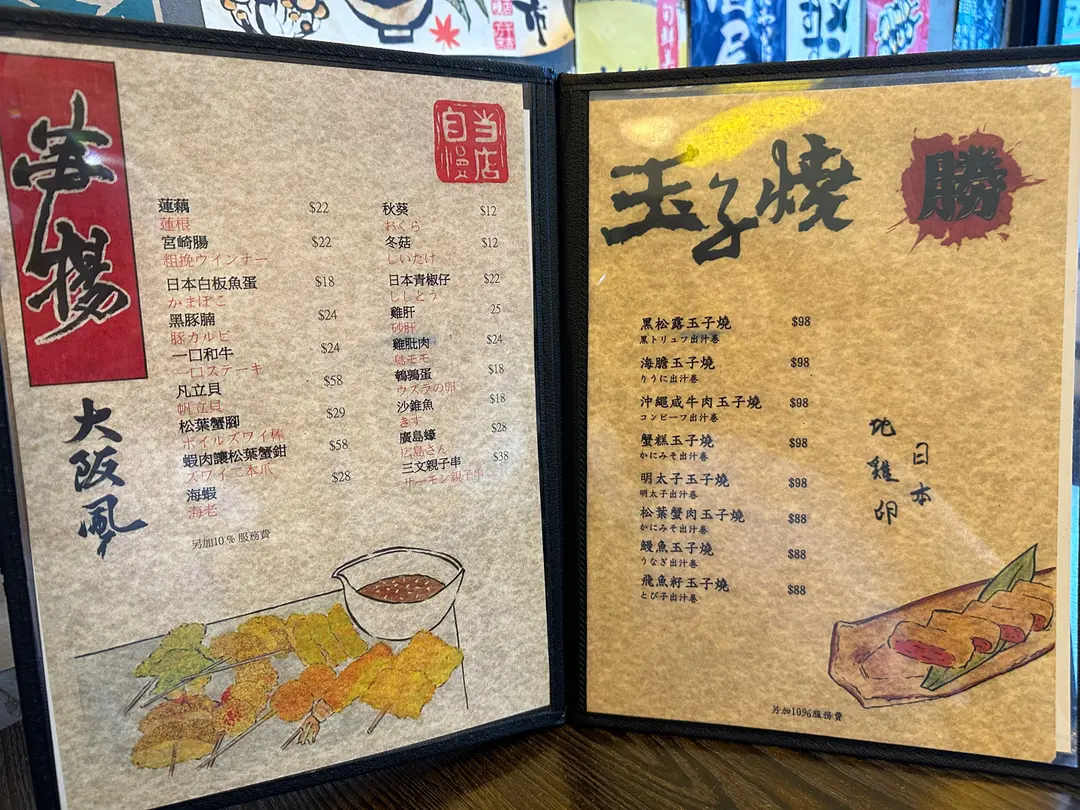 串揚
大阪風
当店
自慢
蓮藕 $22
蓮根
宮崎腸 $22
粗挽ウインナー
日本白板魚蛋 $18
かまぼこ
黑豚腩 $24
豚カルビ
一口和牛 $24
一口ステーキ
凡立貝 $58
帆立貝
松葉蟹腳 $29
ボイルズワイ棒
蝦肉讓松葉蟹鉗 $58
ズワイ二本爪
海蝦 $28
海老
另加10％ 服務費
秋葵 $12
おくら
冬菇 $12
しいたけ
日本青椒仔 $22
ししとう
雞肝 25
砂肝
雞肶肉 $24
鳥モモ
鵪鶉蛋 $18
ウズラの卵
沙錐魚 $18
きす
廣島蠔 $28
広島さん
三文親子串 $38
サーモン親子串
玉子燒
勝
黑松露玉子燒 $98
黒トリュフ出汁巻
海膽玉子燒 $98
りうに出汁巻
沖繩咸牛肉玉子燒 $98
コンビーフ出汁巻
蟹糕玉子燒 $98
かにみそ出汁巻
明太子玉子燒 $98
明太子出汁巻
松葉蟹肉玉子燒 $88
かにみそ出汁巻
鰻魚玉子燒 $88
うなぎ出汁巻
飛魚籽玉子燒 $88
とび子出汁巻
日本
地雞卵
另加10%服務費